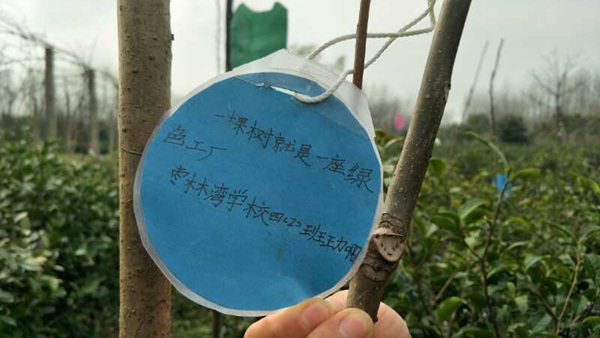 一棵树就是一座绿
色工厂
枣林湾学校四(2)班